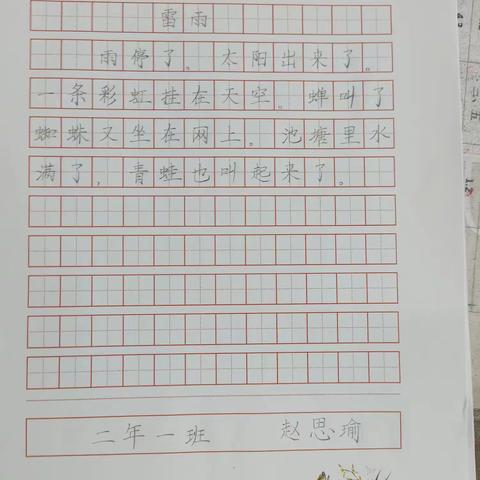 雷雨
雨停了。太阳出来了。
一条彩虹挂在天空。蝉叫了
蜘蛛又坐在网上。池塘里水
满了，青蛙也叫起来了。
二年一班 赵思瑜